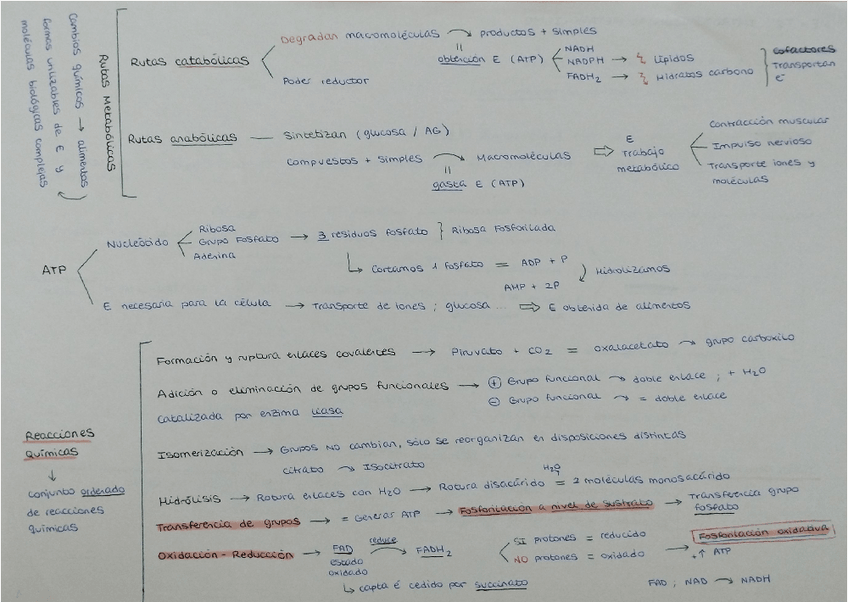 Cambios químicos → alimentos
formas utilizables de E y
moléculas biológicas complejas
Rutas Metabólicas
Rutas catabólicas
Degradan macromoléculas → productos + simples
obtención E (ATP)
NADH
NADPH → Lípidos
FADH2 → Hidratos carbono
cofactores
Transportan
e-
Poder reductor
Rutas anabólicas — Sintetizan (glucosa / AG)
Compuestos + simples → Macromoléculas
gasta E (ATP)
⇒ E
Trabajo
metabólico
Contracción muscular
Impulso nervioso
Transporte iones y
moléculas
ATP
Nucleótido
Ribosa
Grupo Fosfato → 3 residuos fosfato } Ribosa Fosforilada
Adenina
Cortamos 1 fosfato = ADP + P
AMP + 2P
Hidrolizamos
E necesaria para la célula → Transporte de iones ; glucosa ... ⇒ E obtenida de alimentos
Reacciones
Químicas
↓
conjunto ordenado
de reacciones
químicas
Formación y ruptura enlaces covalentes → Piruvato + CO2 = oxalacetato → grupo carboxilo
Adición o eliminación de grupos funcionales → ⊕ Grupo funcional → doble enlace ; + H2O
⊖ Grupo funcional → = doble enlace
Catalizada por enzima liasa
Isomerización → Grupos NO cambian, sólo se reorganizan en disposiciones distintas
citrato → Isocitrato
Hidrólisis → Rotura enlaces con H2O → Rotura disacárido = 2 moléculas monosacárido
H2O
Transferencia de grupos → = Generar ATP → Fosforilación a nivel de sustrato → Transferencia grupo
fosfato
Oxidación - Reducción → FAD reduce FADH2
estado
oxidado
SI protones = reducido
NO protones = oxidado
→ Fosforilación oxidativa
+↑ ATP
capta é cedido por succinato
FAD ; NAD → NADH